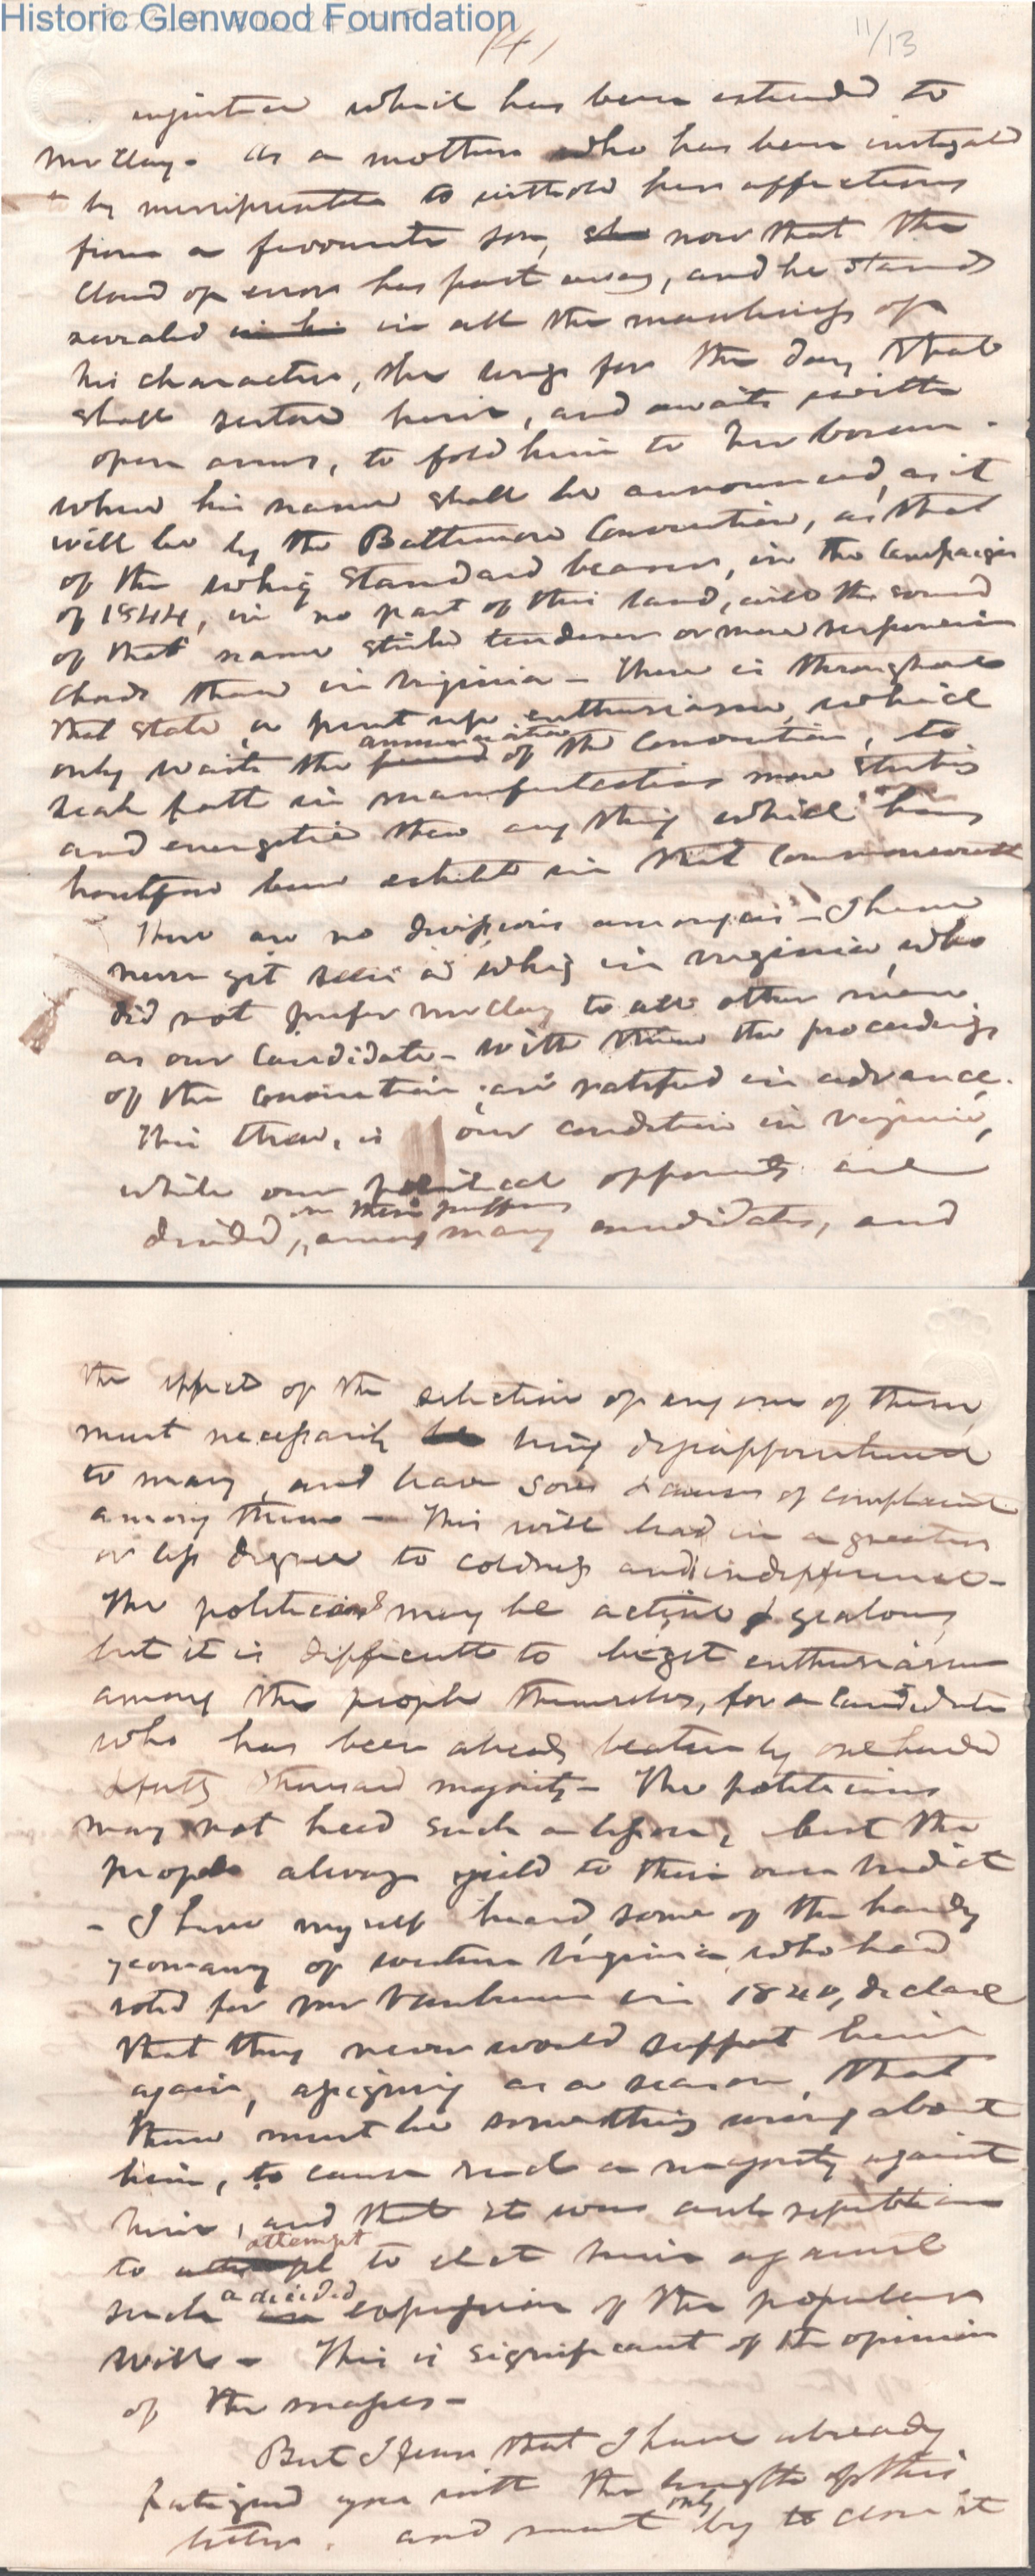 Historic Glenwood Foundation
(4)
11/13
injustice which has been extended to
Mr Clay. As a mother who has been instigated
by misrepresentation to withold her affections
from a favourite son, she now that the
cloud of error has past away, and he stands
revealed in his in all the manliness of
his character, she longs for the day that
shall restore him, and awaits with
open arms, to fold him to her bosom.
When his name shall be announced, as it
will be by the Baltimore Convention, as that
of the whig Standard bearer, in the Campaign
of 1844, in no part of this land, will the sound
of that name strike tenderer or more responsive
chords than in Virginia - There is throughout
that State, a pent up enthusiasm, which
annunciation
only waits the of the Convention, to
break forth in manifestations more striking
and energetic than any thing which has
heretofore been exhibited in that Commonwealth
There are no divisions among us - I have
never yet seen a whig in Virginia, who
did not prefer Mr Clay to all other men
as our Candidate - with them the proceedings
of the convention are ratified in advance.
This then, is our condition in Virginia,
while our political opponents are
in their preferences
divided, among many candidates, and
the effect of the selection of any one of them,
must necessarily be bring disappointment
to many, and leave some causes of complaint
among them - This will lead in a greater
or less degree to coldness and indifference -
The politicians may be active & zealous,
but it is difficult to beget enthusiasm
among the people themselves, for a Candidate
who has been already beaten by one hundred
& forty thousand majority - The politicians
may not heed such a lesson, but the
people always yield to their own verdict
- I have myself heard some of the hardy
yeomanry of western Virginia who had
voted for Mr Van Buren in 1840, declare
that they never would support him
again, assigning as a reason, that
there must be something wrong about
him, to cause such a majority against
him, and that it was anti republican
attempt
to attempt to elect him against
a decided
such an expression of the popular
will - This is significant of the opinion
of the masses -
But I fear that I have already
fatigued you with the length of this
only
letter, and must beg to close it